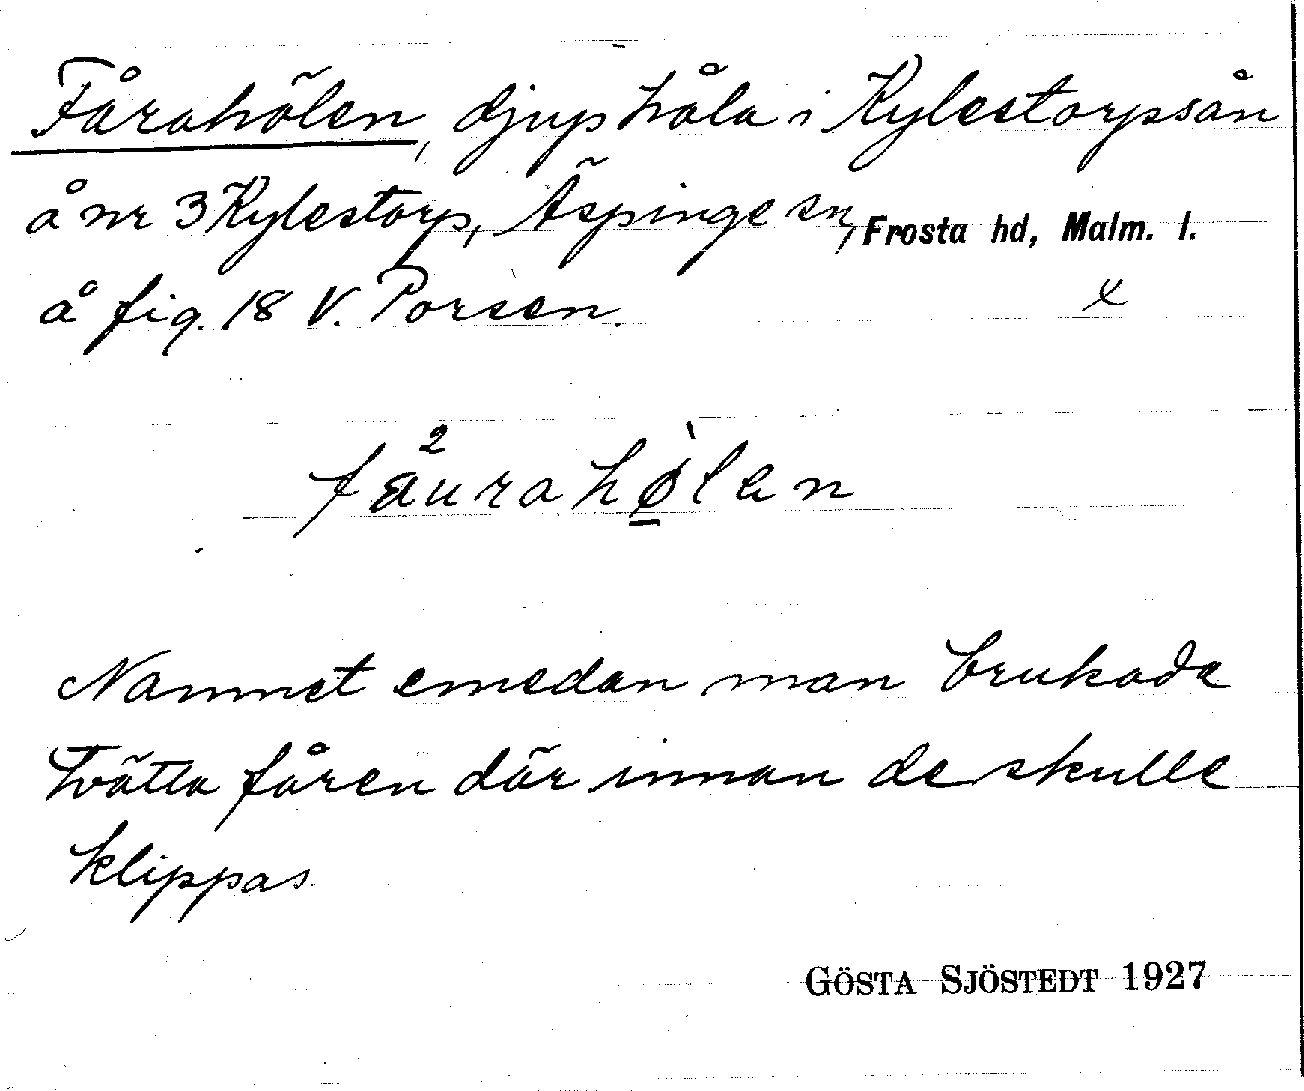 Fårahölen, djuphåla i Kylestorpsån
å nr 3 Kylestorp, Äspinge sn, Frosta hd, Malm. l.
å fig. 18 V. Porsen. x
Namnet emedan man brukade
tvätta fåren där innan de skulle
klippas
GÖSTA SJÖSTEDT 1927